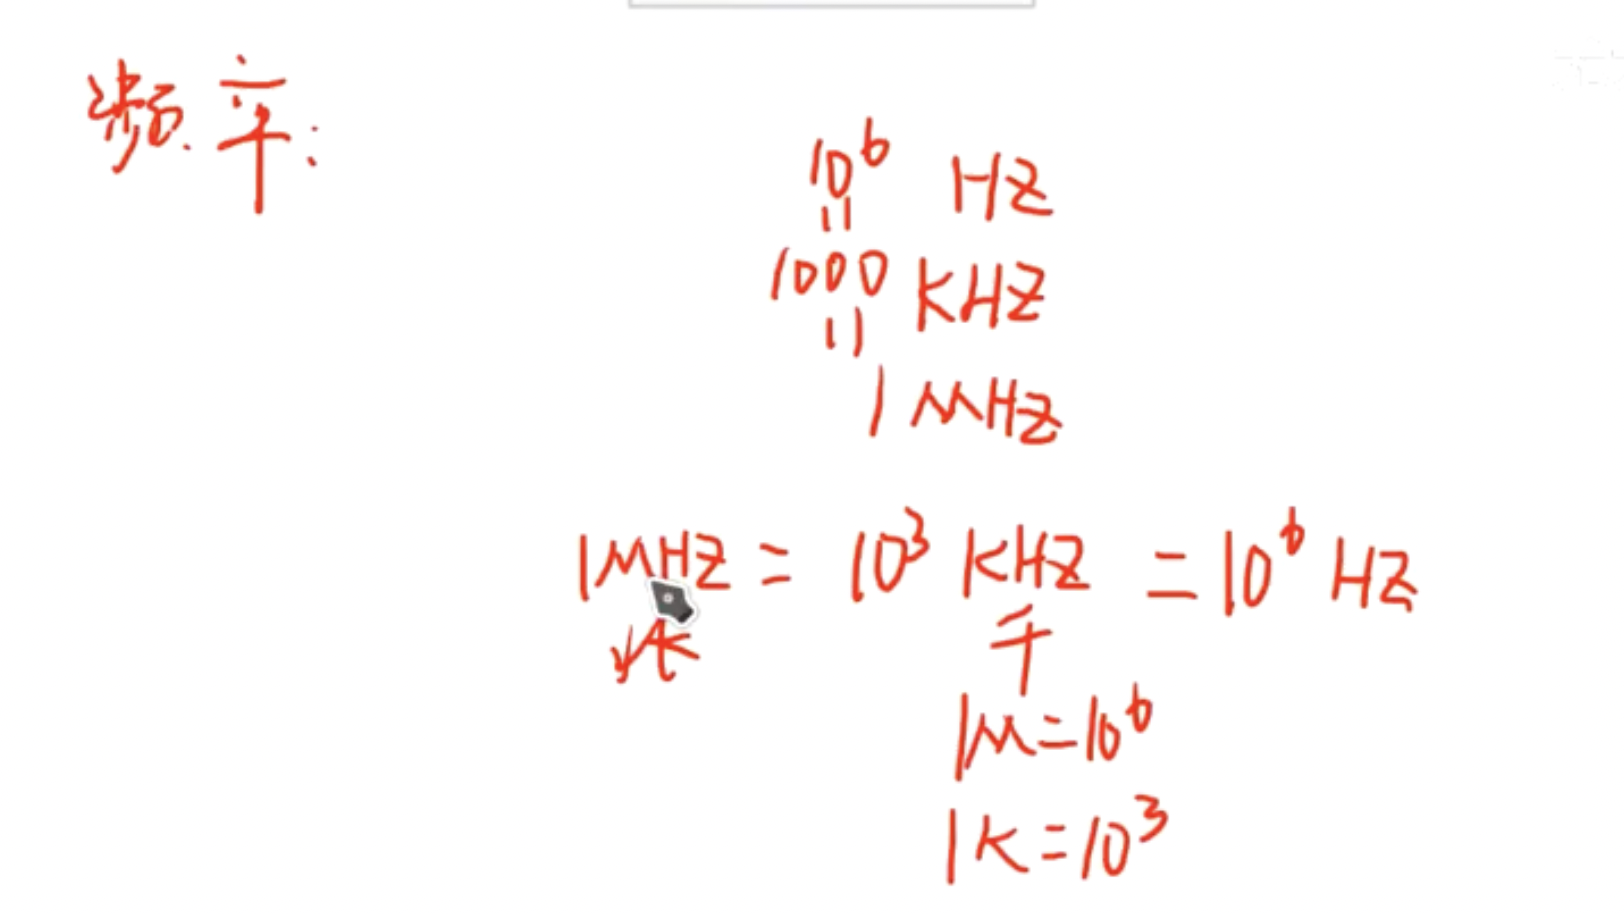 频率:
10⁶ HZ
=
1000 KHZ
=
1 MHZ
1MHZ = 10³ KHZ = 10⁶ HZ
千
1M=10⁶
1K=10³